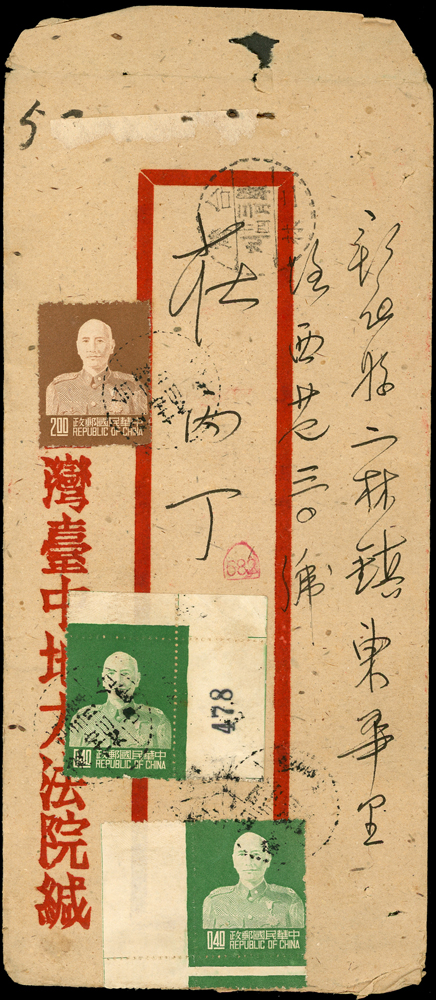 彰化縣二林鎮東華里
西巷三〇號
莊丁
2.00
中華民國郵政
REPUBLIC OF CHINA
682
478
0.40
中華民國郵政
REPUBLIC OF CHINA
0.40
中華民國郵政
REPUBLIC OF CHINA
灣臺中地方法院緘